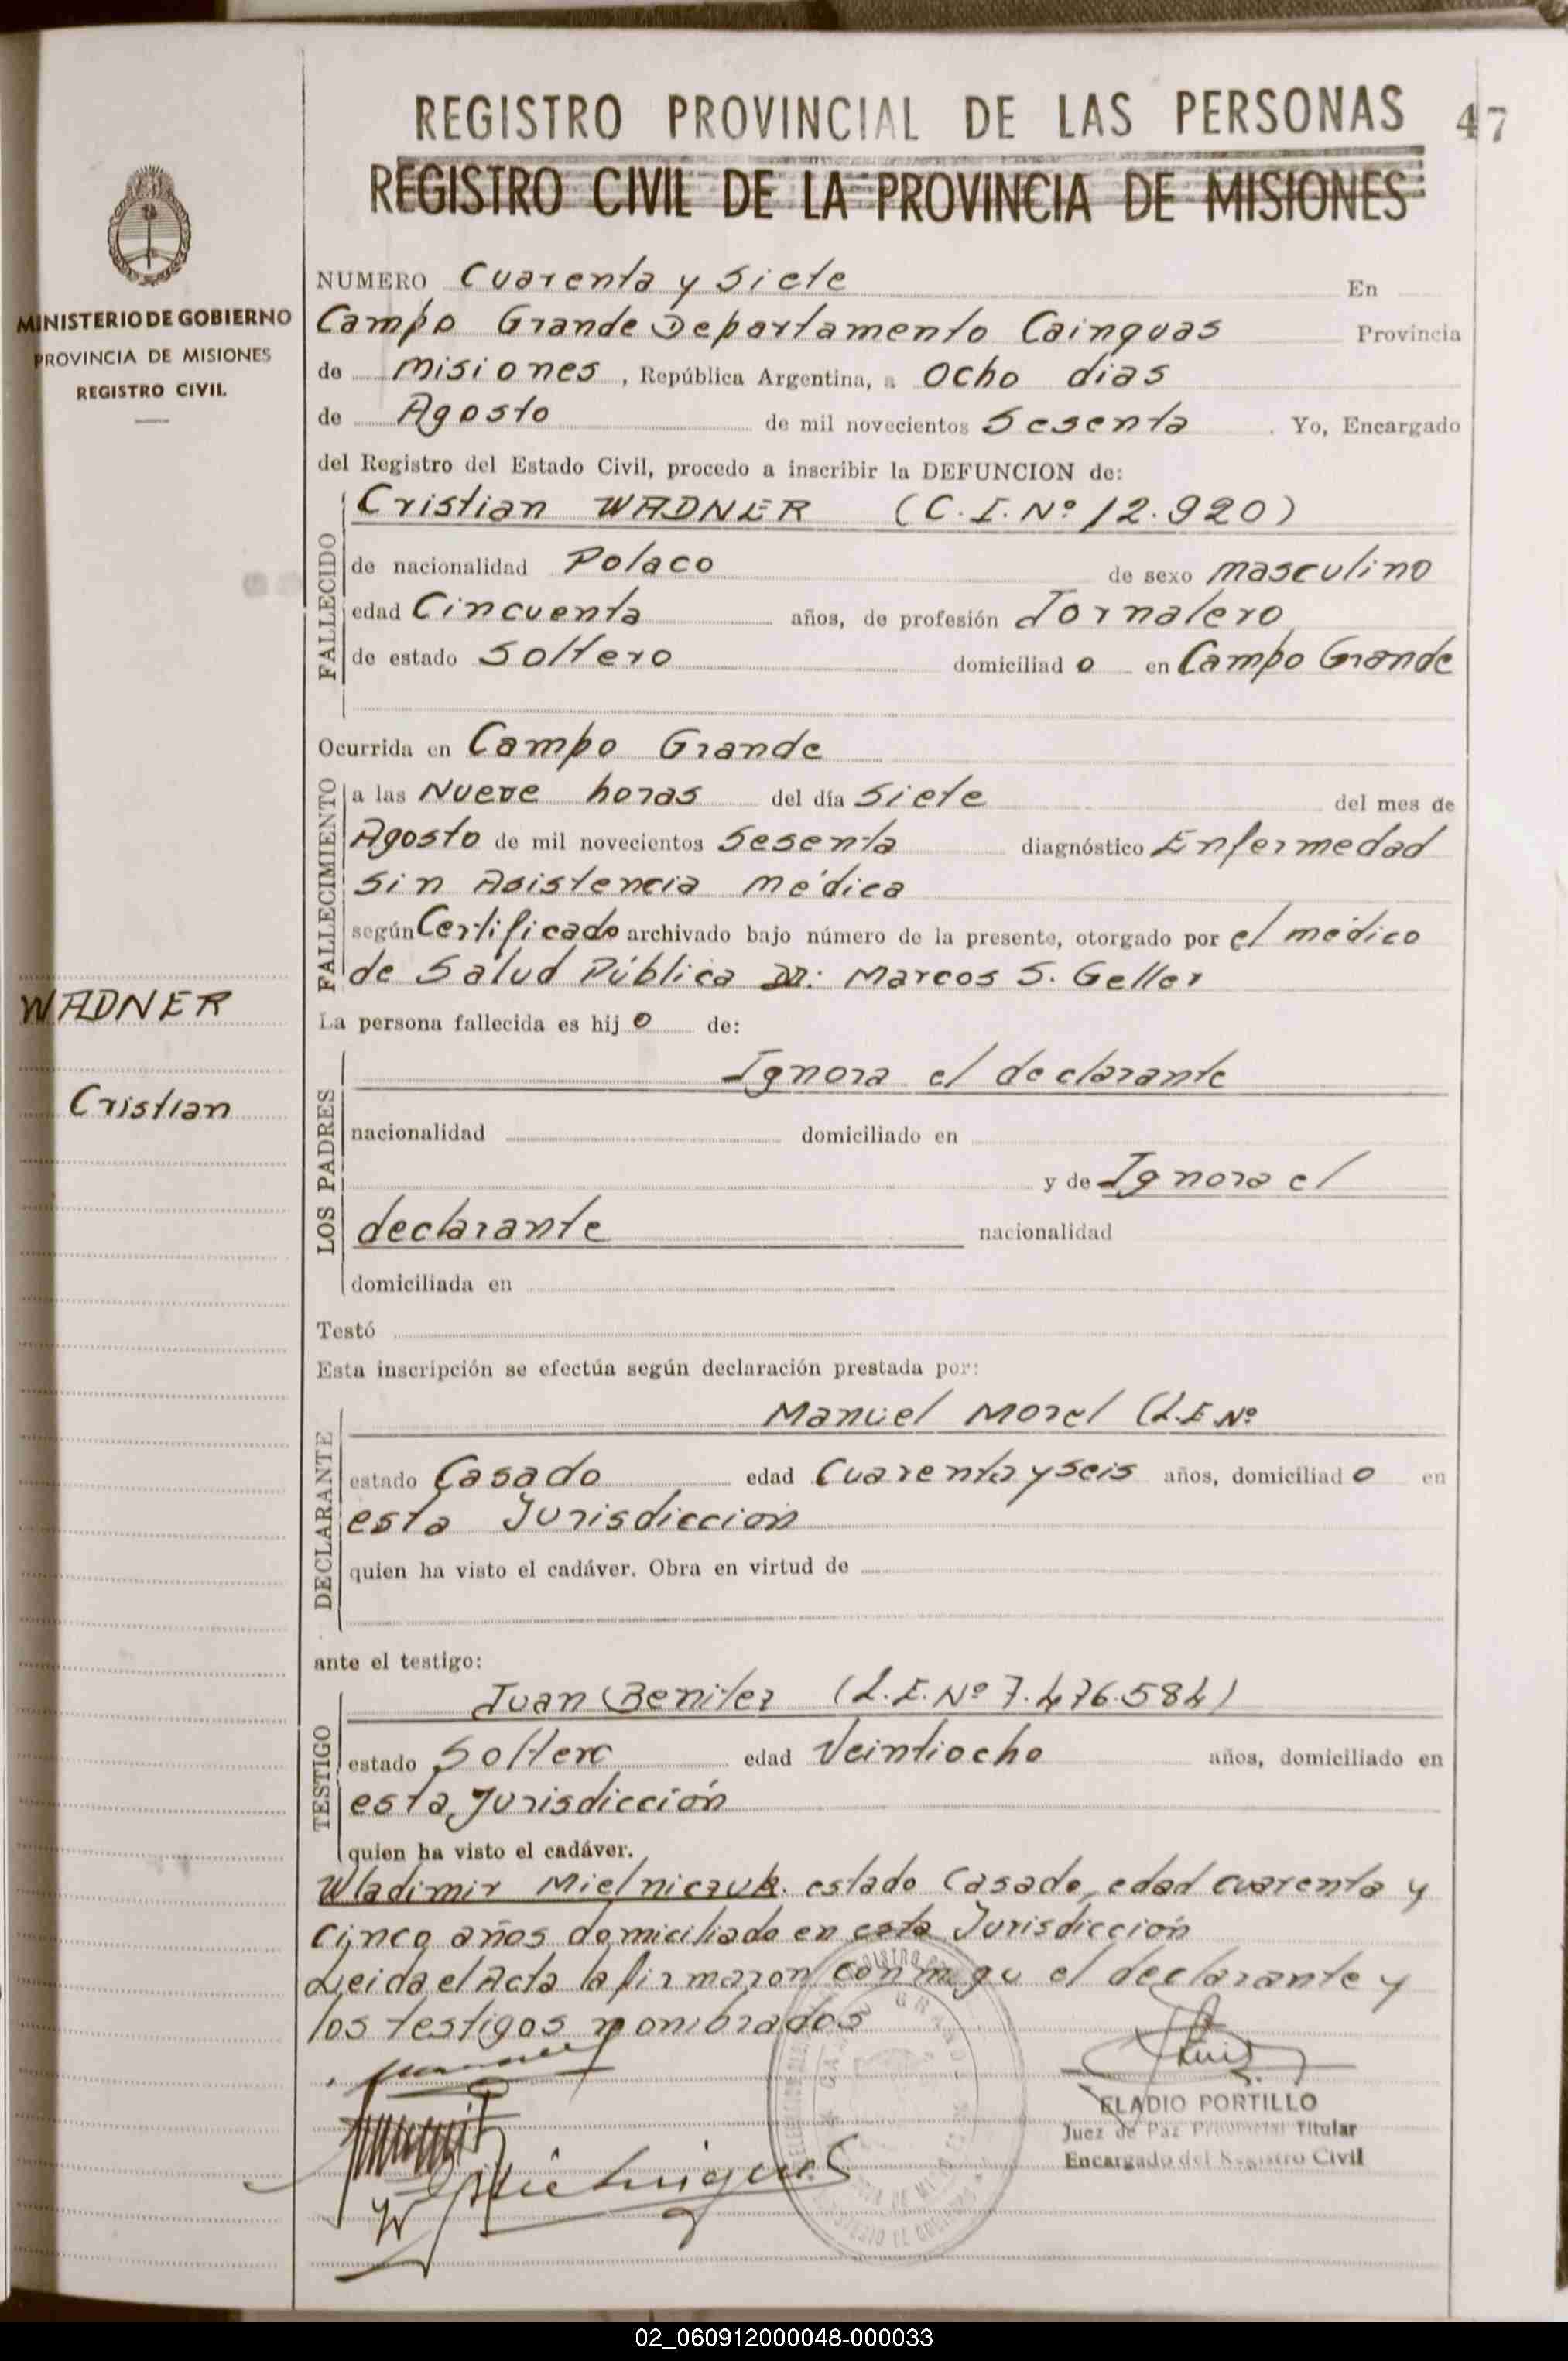 REGISTRO PROVINCIAL DE LAS PERSONAS 47
REGISTRO CIVIL DE LA PROVINCIA DE MISIONES
MINISTERIO DE GOBIERNO
PROVINCIA DE MISIONES
REGISTRO CIVIL
NUMERO Cuarenta y Siete En
Campo Grande Departamento Cainguas Provincia
de Misiones, República Argentina, a Ocho dias
de Agosto de mil novecientos Sesenta. Yo, Encargado
del Registro del Estado Civil, procedo a inscribir la DEFUNCION de:
FALLECIDO
Cristian WADNER (C.I.Nº 12.920)
de nacionalidad Polaco de sexo masculino
edad Cincuenta años, de profesión Jornalero
de estado Soltero domiciliado en Campo Grande
Ocurrida en Campo Grande
FALLECIMIENTO
a las Nueve horas del día Siete del mes de
Agosto de mil novecientos Sesenta diagnóstico Enfermedad
Sin Asistencia Médica
según Certificado archivado bajo número de la presente, otorgado por el médico
de Salud Pública Dr: Marcos S. Geller
WADNER
Cristian
La persona fallecida es hijo de:
LOS PADRES
Ignora el declarante
nacionalidad domiciliado en
y de Ignora el
declarante nacionalidad
domiciliada en
Testó
Esta inscripción se efectúa según declaración prestada por:
DECLARANTE
Manuel Morel (L.E Nº
estado Casado edad Cuarenta y seis años, domiciliado en
esta Jurisdiccion
quien ha visto el cadáver. Obra en virtud de
ante el testigo:
TESTIGO
Juan Benitez (L.E.Nº 7.476.584)
estado Soltero edad Veintiocho años, domiciliado en
esta Jurisdicción
quien ha visto el cadáver.
Wladimir Mielniczuk. estado Casado, edad cuarenta y
cinco años domiciliado en esta Jurisdicción
Leida el Acta la firmaron conmigo el declarante y
los testigos nombrados
ELADIO PORTILLO
Juez de Paz Provincial Titular
Encargado del Registro Civil
02_060912000048-000033